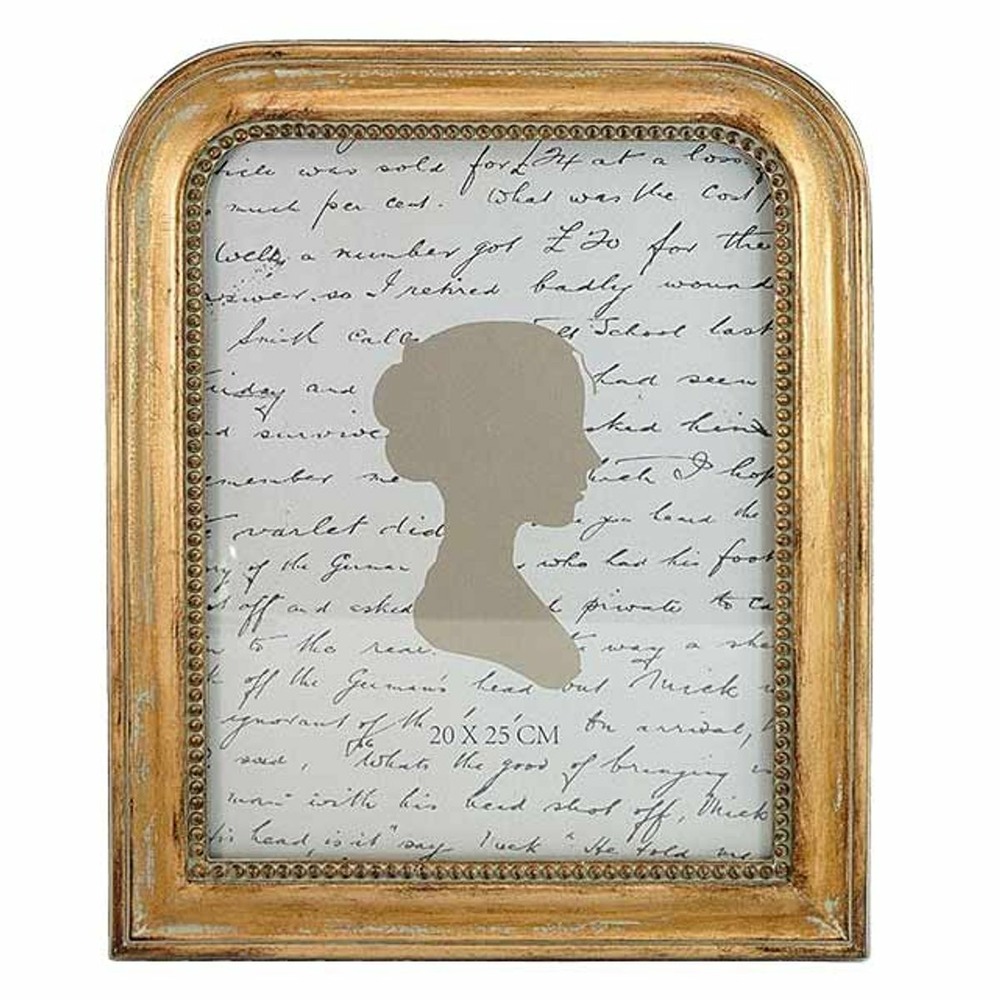 was sold for £24 at a loss
much per cent. What was the cost
Well, a number got £20 for the
so I retired badly wound
Smith calle School last
and had seen
survive sked him
member me I hop
varlet did you heard the
of the German who had his foot
off and asked private to ca
to the rear. way a she
off the German's head but Mick
ignorant of th On arrival,
20 X 25 CM
said, "Whats the good of bringing
man" with his head shot off, Mick
his head, is it" say Mick "He told me